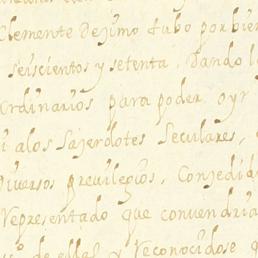 Clemente Dezimo tubo por bien
seiscientos y setenta, Dando l
Ordinarios para poder oyr
i alos Sazerdotes Seculares,
Diversos previlegios, Conzedid
Representado que convendria
de ellas y Reconocidose q